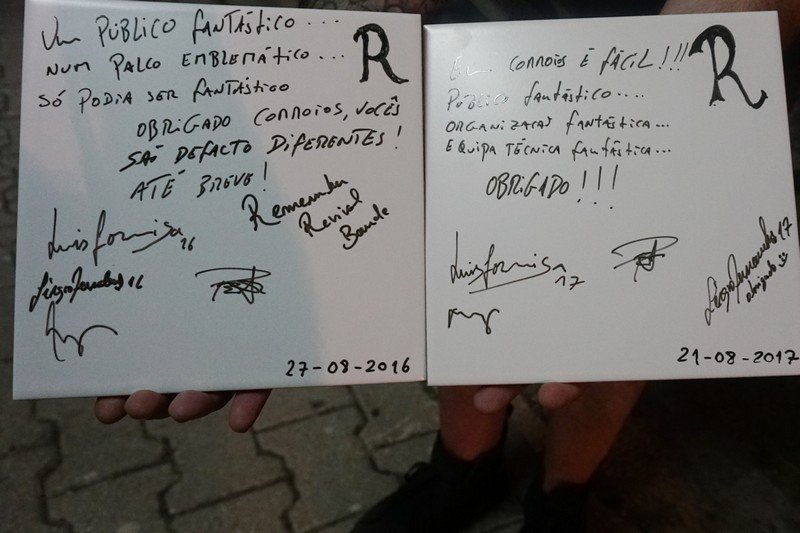 Um PÚBLICO fANTÁSTICO...
NUM PALCO EMBLEMÁTICO...
SÓ PODIA SER fANTÁSTICO
OBRIGADO CORROIOS, VOCÊS
SÃO DEFACTO DIFERENTES!
ATÉ BREVE!
R
Luis formiga 16
Remember
Revival
Bande
Sérgio fernandes 16
27-08-2016
CORROIOS É FÁCIL!!!
PÚBLICO fantástico....
ORGANIZAÇÃO fANTÁSTICA...
EQUIPA TÉCNICA fANTÁSTICA...
OBRIGADO!!!
R
Luis formiga 17
Sérgio fernandes 17
obrigado
21-08-2017